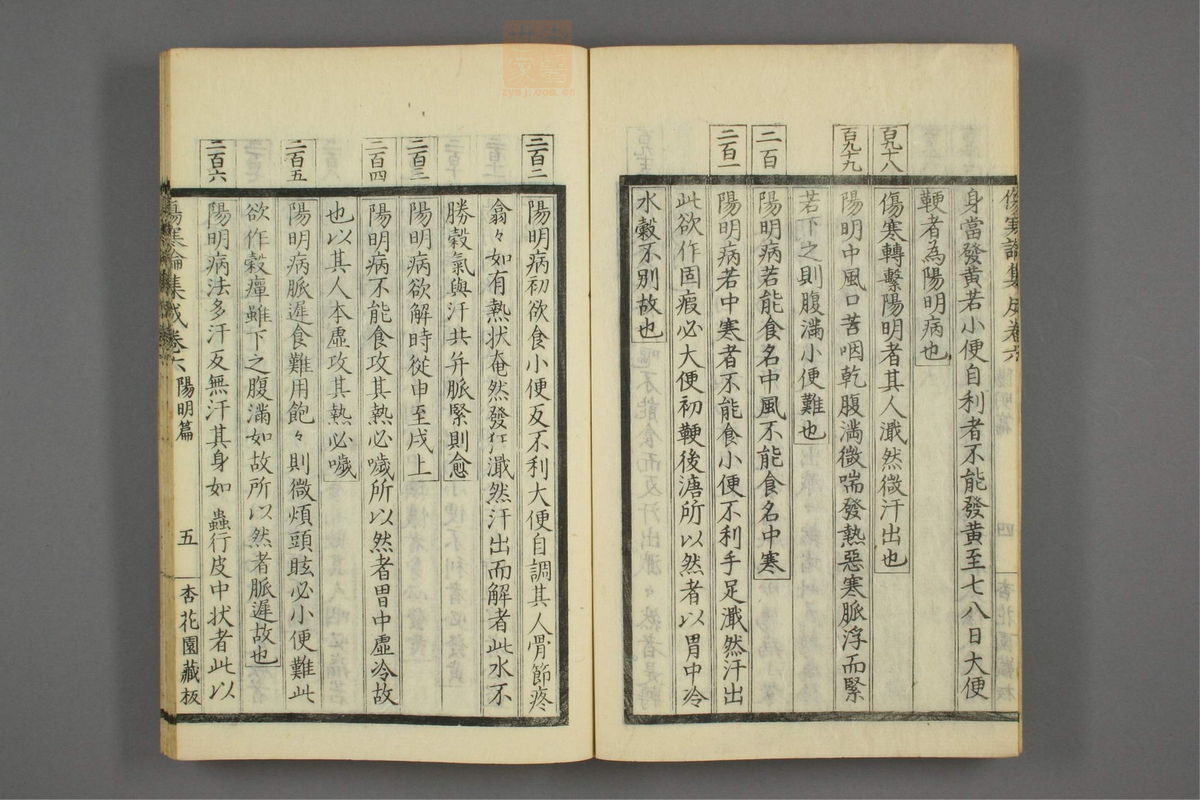 身當發黃若小便自利者不能發黃至七八日大便
鞕者為陽明病也
百九十八
傷寒轉繫陽明者其人濈然微汗出也
百九十九
陽明中風口苦咽乾腹満微喘發熱惡寒脈浮而緊
若下之則腹滿小便難也
二百
陽明病若能食名中風不能食名中寒
二百一
陽明病若中寒者不能食小便不利手足濈然汗出
此欲作固瘕必大便初鞕後溏所以然者以胃中冷
水穀不別故也
二百二
陽明病初欲食小便反不利大便自調其人骨節疼
翕々如有熱状奄然發狂濈然汗出而解者此水不
勝穀氣與汗共并脈緊則愈
二百三
陽明病欲解時從申至戌上
二百四
陽明病不能食攻其熱必噦所以然者胃中虛冷故
也以其人本虛攻其熱必噦
二百五
陽明病脈遲食難用飽々則微煩頭眩必小便難此
欲作穀癉雖下之腹滿如故所以然者脈遲故也
二百六
陽明病法多汗反無汗其身如蟲行皮中状者此以
傷寒論集成卷六 陽明篇 五 杏花園藏板
zysj.com.cn